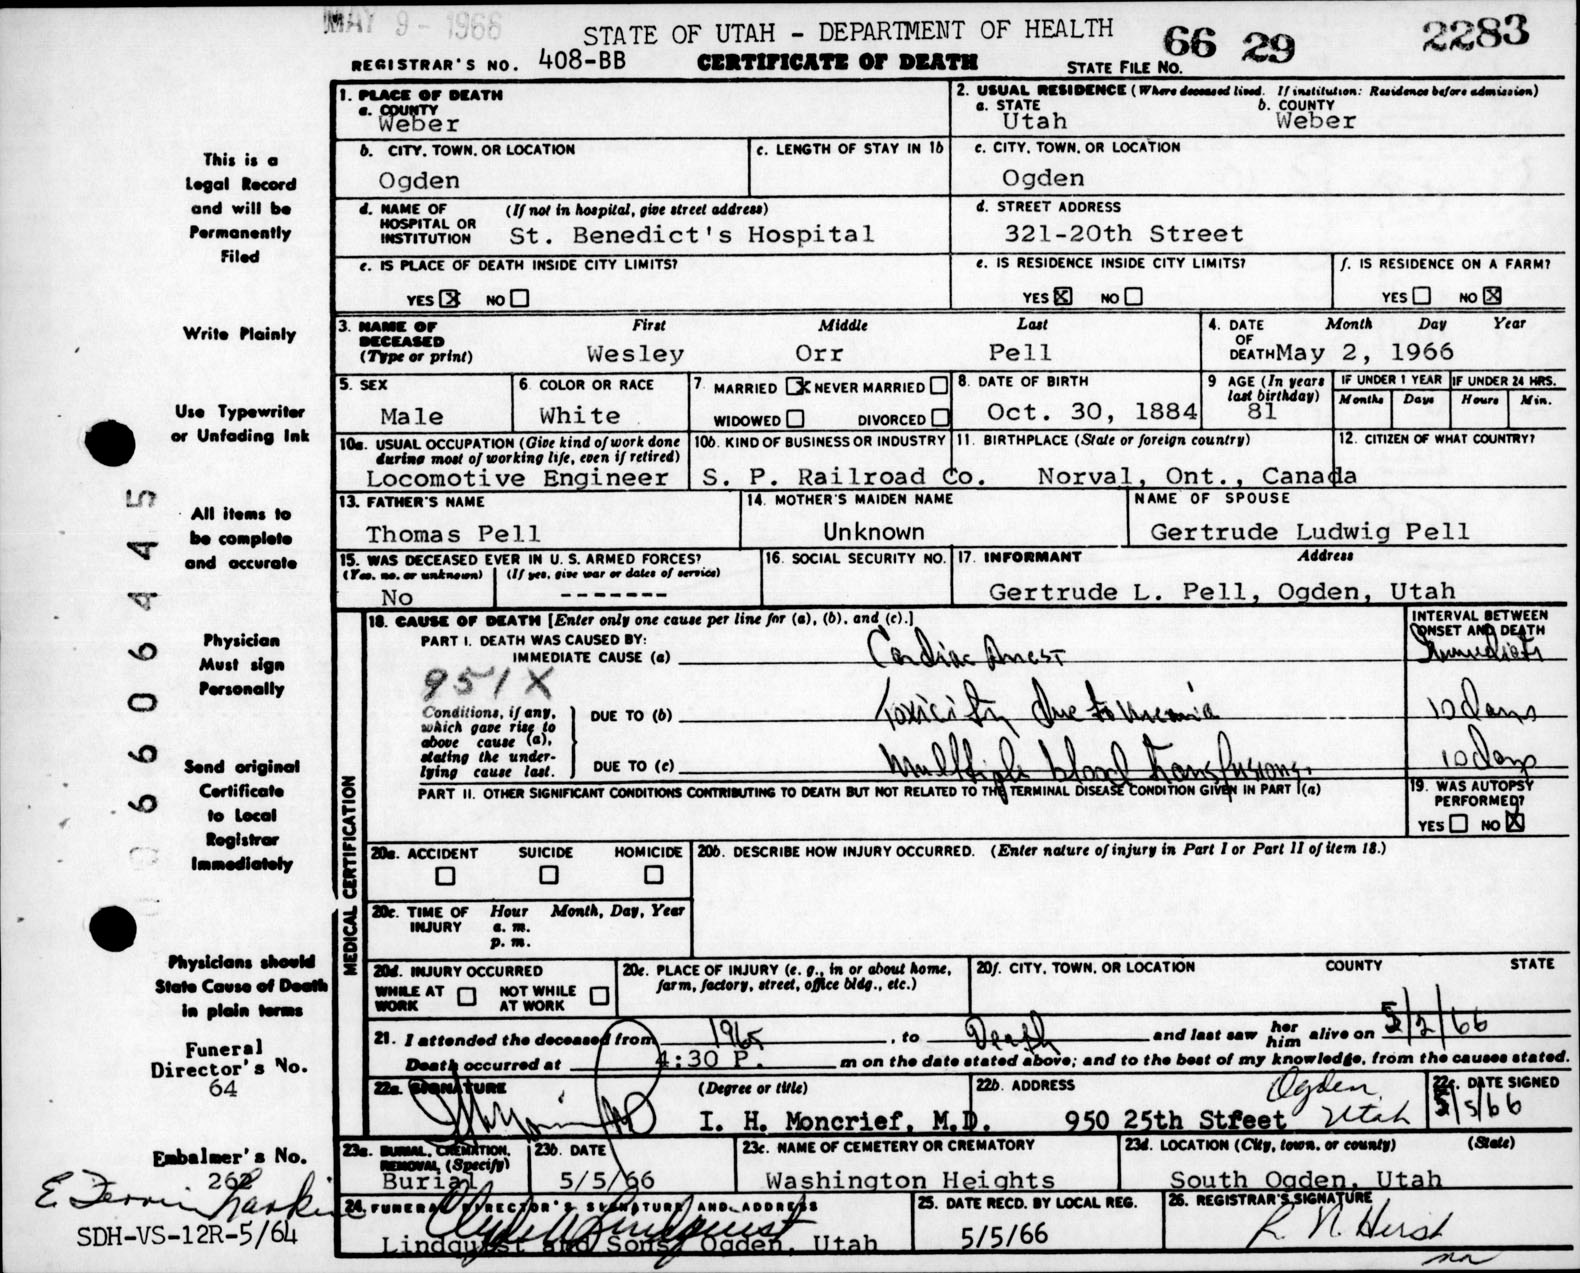 MAY 9 - 1966
STATE OF UTAH - DEPARTMENT OF HEALTH
66 29 2283
REGISTRAR'S NO. 408-BB CERTIFICATE OF DEATH STATE FILE NO.
1. PLACE OF DEATH
a. COUNTY
Weber
2. USUAL RESIDENCE (Where deceased lived. If institution: Residence before admission)
a. STATE b. COUNTY
Utah Weber
b. CITY, TOWN, OR LOCATION c. LENGTH OF STAY IN 1b
Ogden
c. CITY, TOWN, OR LOCATION
Ogden
d. NAME OF HOSPITAL OR INSTITUTION (If not in hospital, give street address)
St. Benedict's Hospital
d. STREET ADDRESS
321-20th Street
e. IS PLACE OF DEATH INSIDE CITY LIMITS?
YES X NO
e. IS RESIDENCE INSIDE CITY LIMITS?
YES X NO
f. IS RESIDENCE ON A FARM?
YES NO X
3. NAME OF DECEASED (Type or print) First Middle Last
Wesley Orr Pell
4. DATE OF DEATH Month Day Year
May 2, 1966
5. SEX
Male
6. COLOR OR RACE
White
7. MARRIED X NEVER MARRIED
WIDOWED DIVORCED
8. DATE OF BIRTH
Oct. 30, 1884
9 AGE (In years last birthday)
81
IF UNDER 1 YEAR IF UNDER 24 HRS.
Months Days Hours Min.
10a. USUAL OCCUPATION (Give kind of work done during most of working life, even if retired)
Locomotive Engineer
10b. KIND OF BUSINESS OR INDUSTRY
S. P. Railroad Co.
11. BIRTHPLACE (State or foreign country)
Norval, Ont., Canada
12. CITIZEN OF WHAT COUNTRY?
13. FATHER'S NAME
Thomas Pell
14. MOTHER'S MAIDEN NAME
Unknown
NAME OF SPOUSE
Gertrude Ludwig Pell
15. WAS DECEASED EVER IN U. S. ARMED FORCES?
(Yes, no, or unknown) (If yes, give war or dates of service)
No -------
16. SOCIAL SECURITY NO.
17. INFORMANT Address
Gertrude L. Pell, Ogden, Utah
18. CAUSE OF DEATH [Enter only one cause per line for (a), (b), and (c).]
INTERVAL BETWEEN ONSET AND DEATH
PART I. DEATH WAS CAUSED BY:
IMMEDIATE CAUSE (a) Cardiac Arrest Immediate
951X
Conditions, if any, which gave rise to above cause (a), stating the underlying cause last.
DUE TO (b) Toxicity due to uremia 10 days
DUE TO (c) Multiple blood transfusions. 10 days
PART II. OTHER SIGNIFICANT CONDITIONS CONTRIBUTING TO DEATH BUT NOT RELATED TO THE TERMINAL DISEASE CONDITION GIVEN IN PART I(a)
19. WAS AUTOPSY PERFORMED?
YES NO X
MEDICAL CERTIFICATION
20a. ACCIDENT SUICIDE HOMICIDE
20b. DESCRIBE HOW INJURY OCCURRED. (Enter nature of injury in Part I or Part II of item 18.)
20c. TIME OF INJURY Hour Month, Day, Year
a. m.
p. m.
20d. INJURY OCCURRED
WHILE AT WORK NOT WHILE AT WORK
20e. PLACE OF INJURY (e. g., in or about home, farm, factory, street, office bldg., etc.)
20f. CITY, TOWN, OR LOCATION COUNTY STATE
21. I attended the deceased from 1965, to Death and last saw her him alive on 5/2/66
Death occurred at 4:30 P. m on the date stated above; and to the best of my knowledge, from the causes stated.
22a. SIGNATURE (Degree or title)
I. H. Moncrief, M.D.
22b. ADDRESS
950 25th Street Ogden, Utah
22c. DATE SIGNED
5/5/66
23a. BURIAL, CREMATION, REMOVAL (Specify)
Burial
23b. DATE
5/5/66
23c. NAME OF CEMETERY OR CREMATORY
Washington Heights
23d. LOCATION (City, town, or county) (State)
South Ogden, Utah
24. FUNERAL DIRECTOR'S SIGNATURE AND ADDRESS
Clyde Lindquist
Lindquist and Sons, Ogden, Utah
25. DATE RECD. BY LOCAL REG.
5/5/66
26. REGISTRAR'S SIGNATURE
This is a
Legal Record
and will be
Permanently
Filed
Write Plainly
Use Typewriter
or Unfading Ink
All items to
be complete
and accurate
Physician
Must sign
Personally
Send original
Certificate
to Local
Registrar
Immediately
Physicians should
State Cause of Death
in plain terms
Funeral
Director's No.
64
Embalmer's No.
262
SDH-VS-12R-5/64
06606445